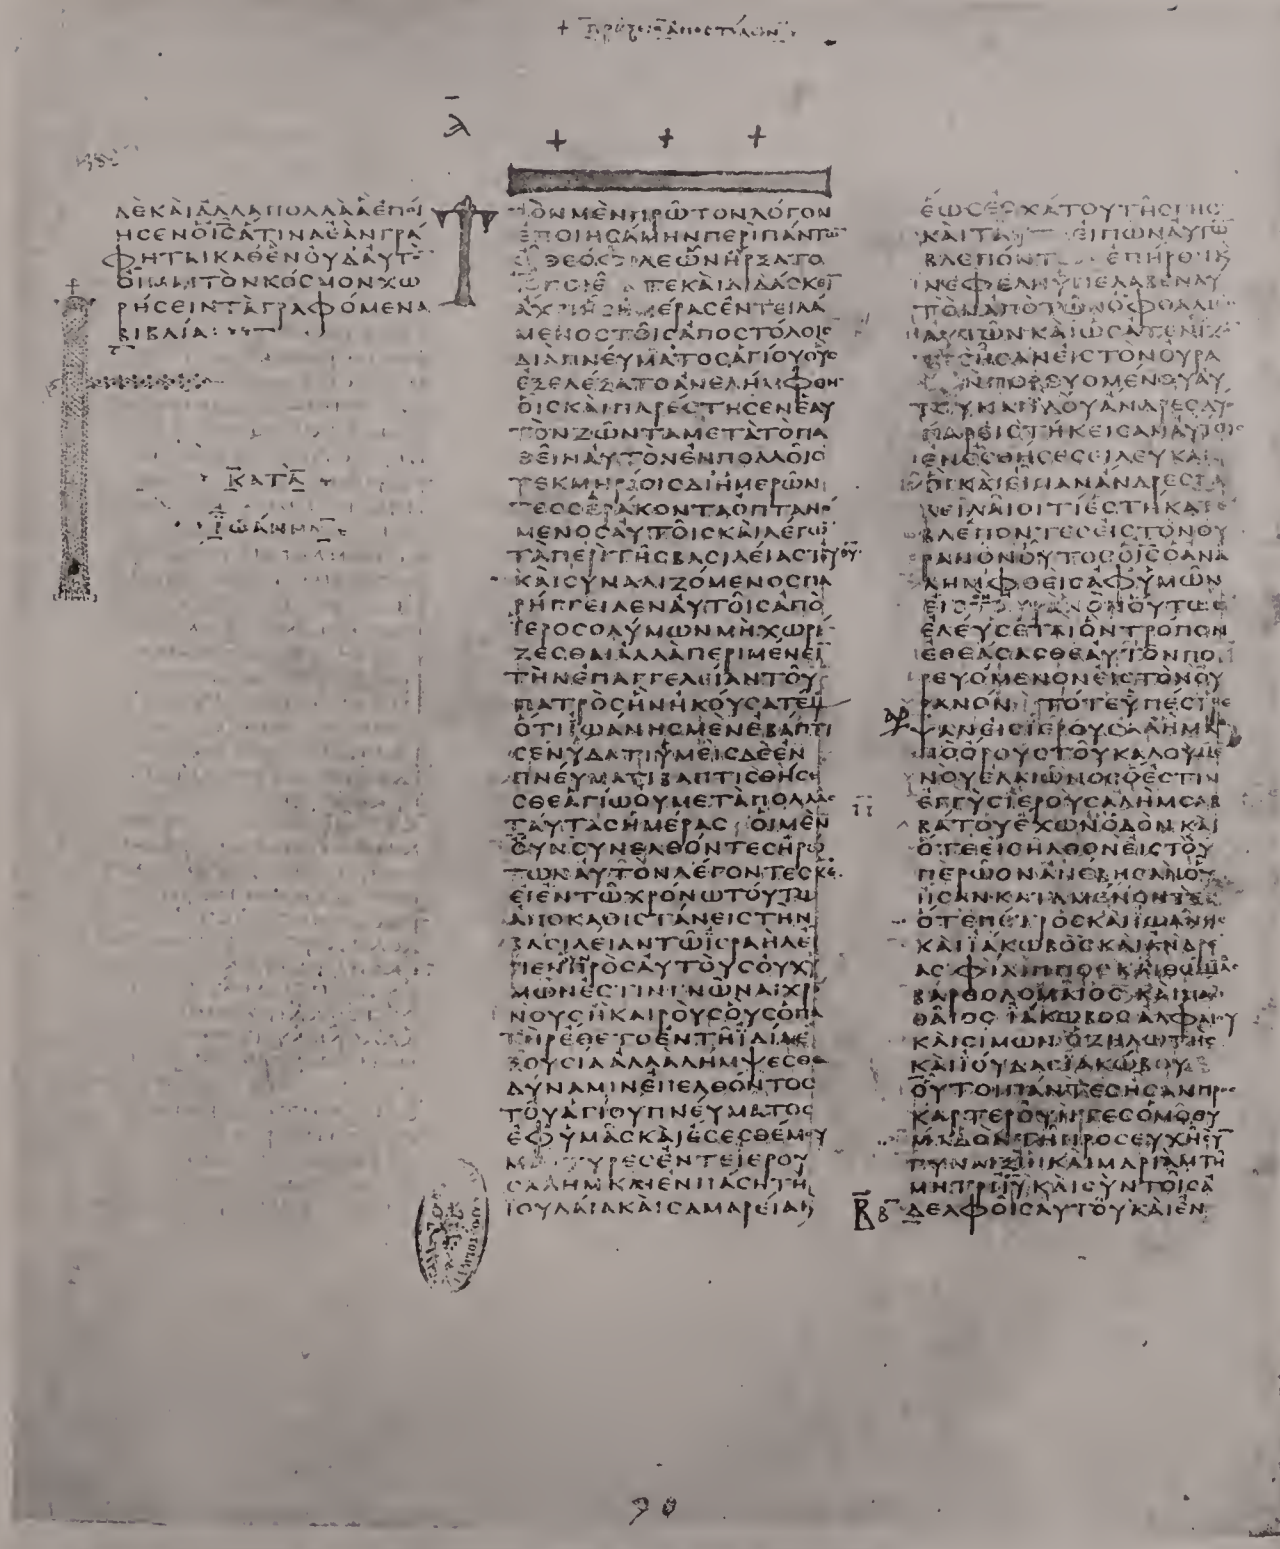 + ΠΡΑΞΕΙΣ ΑΠΟΣΤΟΛΩΝ
ΔΕΚΑΙΑΛΛΑΠΟΛΛΑΑΕΠΟΙ
ΗϹΕΝΟΙϹΑΤΙΝΑΕΑΝΓΡΑ
ΦΗΤΑΙΚΑΘΕΝΟΥΔΑΥΤΟ
ΟΙΜΑΙΤΟΝΚΟϹΜΟΝΧΩ
ΡΗϹΕΙΝΤΑΓΡΑΦΟΜΕΝΑ
ΒΙΒΛΙΑ:
ΚΑΤΑ
ΙΩΑΝΝΗΝ
ΤΟΝΜΕΝΠΡΩΤΟΝΛΟΓΟΝ
ΕΠΟΙΗϹΑΜΗΝΠΕΡΙΠΑΝΤΩ
ΘΕΟΦΙΛΕΩΝΗΡΞΑΤΟ
ΠΟΙΕΙ ΤΕΚΑΙΔΙΔΑϹΚΕΙ
ΑΧΡΙΗϹΗΜΕΡΑϹΕΝΤΕΙΛΑ
ΜΕΝΟϹΤΟΙϹΑΠΟϹΤΟΛΟΙϹ
ΔΙΑΠΝΕΥΜΑΤΟϹΑΓΙΟΥΟΥϹ
ΕΞΕΛΕΞΑΤΟΑΝΕΛΗΜΦΘΗ
ΟΙϹΚΑΙΠΑΡΕϹΤΗϹΕΝΕΑΥ
ΤΟΝΖΩΝΤΑΜΕΤΑΤΟΠΑ
ΘΕΙΝΑΥΤΟΝΕΝΠΟΛΛΟΙϹ
ΤΕΚΜΗΡΙΟΙϹΔΙΗΜΕΡΩΝ
ΤΕϹϹΕΡΑΚΟΝΤΑΟΠΤΑΝΟ
ΜΕΝΟϹΑΥΤΟΙϹΚΑΙΛΕΓΩ
ΤΑΠΕΡΙΤΗϹΒΑϹΙΛΕΙΑϹΤΟΥΘΥ
ΚΑΙϹΥΝΑΛΙΖΟΜΕΝΟϹΠΑ
ΡΗΓΓΕΙΛΕΝΑΥΤΟΙϹΑΠΟ
ΙΕΡΟϹΟΛΥΜΩΝΜΗΧΩΡΙ
ΖΕϹΘΑΙΑΛΛΑΠΕΡΙΜΕΝΕΙ
ΤΗΝΕΠΑΓΓΕΛΕΙΑΝΤΟΥ
ΠΑΤΡΟϹΗΝΗΚΟΥϹΑΤΕΜ
ΟΤΙΙΩΑΝΗϹΜΕΝΕΒΑΠΤΙ
ϹΕΝΥΔΑΤΙΥΜΕΙϹΔΕΕΝ
ΠΝΕΥΜΑΤΙΒΑΠΤΙϹΘΗϹΕ
ϹΘΕΑΓΙΩΟΥΜΕΤΑΠΟΛΛΑϹ
ΤΑΥΤΑϹΗΜΕΡΑϹ ΟΙΜΕΝ
ΟΥΝϹΥΝΕΛΘΟΝΤΕϹΗΡΩ
ΤΩΝΑΥΤΟΝΛΕΓΟΝΤΕϹΚΕ
ΕΙΕΝΤΩΧΡΟΝΩΤΟΥΤΩ
ΑΠΟΚΑΘΙϹΤΑΝΕΙϹΤΗΝ
ΒΑϹΙΛΕΙΑΝΤΩΙϹΡΑΗΛΕΙ
ΠΕΝΠΡΟϹΑΥΤΟΥϹΟΥΧΥ
ΜΩΝΕϹΤΙΝΓΝΩΝΑΙΧΡΟ
ΝΟΥϹΗΚΑΙΡΟΥϹΟΥϹΟΠΑ
ΤΗΡΕΘΕΤΟΕΝΤΗΙΔΙΑΕ
ΞΟΥϹΙΑΑΛΛΑΛΗΜΨΕϹΘΕ
ΔΥΝΑΜΙΝΕΠΕΛΘΟΝΤΟϹ
ΤΟΥΑΓΙΟΥΠΝΕΥΜΑΤΟϹ
ΕΦΥΜΑϹΚΑΙΕϹΕϹΘΕΜΟΥ
ΜΑΡΤΥΡΕϹΕΝΤΕΙΕΡΟΥ
ϹΑΛΗΜΚΑΙΕΝΠΑϹΗΤΗ
ΙΟΥΔΑΙΑΚΑΙϹΑΜΑΡΕΙΑΚ
ΕΩϹΕϹΧΑΤΟΥΤΗϹΓΗϹ
ΚΑΙΤΑΥΤ ΕΙΠΩΝΑΥΤΩ
ΒΛΕΠΟΝΤ ΕΠΗΡΘΗΚ
ΝΕΦΕΛΗΥΠΕΛΑΒΕΝΑΥ
ΤΟΝΑΠΟΤΩΝΟΦΘΑΛΜΩ
ΑΥΤΩΝΚΑΙΩϹΑΤΕΝΙΖΟ
ΤΕϹΗϹΑΝΕΙϹΤΟΝΟΥΡΑ
ΝΟΝΠΟΡΕΥΟΜΕΝΟΥΑΥ
ΤΟΥΚΑΙΙΔΟΥΑΝΔΡΕϹΔΥΟ
ΠΑΡΕΙϹΤΗΚΕΙϹΑΝΑΥΤΟΙϹ
ΕΝΕϹΘΗϹΕϹΕΙΛΕΥΚΑΙϹ
ΟΙΚΑΙΕΙΠΑΝΑΝΔΡΕϹΓΑ
ΛΕΙΛΑΙΟΙΤΙΕϹΤΗΚΑΤΕ
ΒΛΕΠΟΝΤΕϹΕΙϹΤΟΝΟΥ
ΡΑΝΟΝΟΥΤΟϹΟΙϹΟΑΝΑ
ΛΗΜΦΘΕΙϹΑΦΥΜΩΝ
ΕΙϹΤΟΝΟΥΡΑΝΟΝΟΥΤΩϹ
ΕΛΕΥϹΕΤΑΙΟΝΤΡΟΠΟΝ
ΕΘΕΑϹΑϹΘΕΑΥΤΟΝΠΟ
ΡΕΥΟΜΕΝΟΝΕΙϹΤΟΝΟΥ
ΡΑΝΟΝ ΤΟΤΕΥΠΕϹΤΡΕ
ΨΑΝΕΙϹΙΕΡΟΥϹΑΛΗΜΑ
ΠΟΟΡΟΥϹΤΟΥΚΑΛΟΥΜΕ
ΝΟΥΕΛΑΙΩΝΟϹΟΕϹΤΙΝ
ΕΓΓΥϹΙΕΡΟΥϹΑΛΗΜϹΑΒ
ΒΑΤΟΥΕΧΩΝΟΔΟΝΚΑΙ
ΟΤΕΕΙϹΗΛΘΟΝΕΙϹΤΟΥ
ΠΕΡΩΟΝΑΝΕΒΗϹΑΝΟΥ
ΗϹΑΝΚΑΤΑΜΕΝΟΝΤΕϹ
ΟΤΕΠΕΤΡΟϹΚΑΙΙΩΑΝΗϹ
ΚΑΙΙΑΚΩΒΟϹΚΑΙΑΝΔΡΕ
ΑϹΦΙΛΙΠΠΟϹΚΑΙΘΩΜΑϹ
ΒΑΡΘΟΛΟΜΑΙΟϹΚΑΙΜΑΘ
ΘΑΙΟϹΙΑΚΩΒΟϹΑΛΦΑΙΟΥ
ΚΑΙϹΙΜΩΝΟΖΗΛΩΤΗϹ
ΚΑΙΙΟΥΔΑϹΙΑΚΩΒΟΥ
ΟΥΤΟΙΠΑΝΤΕϹΗϹΑΝΠΡΟϹ
ΚΑΡΤΕΡΟΥΝΤΕϹΟΜΟΘΥ
ΜΑΔΟΝΤΗΠΡΟϹΕΥΧΗϹΥ
ΓΥΝΑΙΞΙΝΚΑΙΜΑΡΙΑΜΤΗ
ΜΗΤΡΙΙΥΚΑΙϹΥΝΤΟΙϹΑ
ΔΕΛΦΟΙϹΑΥΤΟΥΚΑΙΕΝ